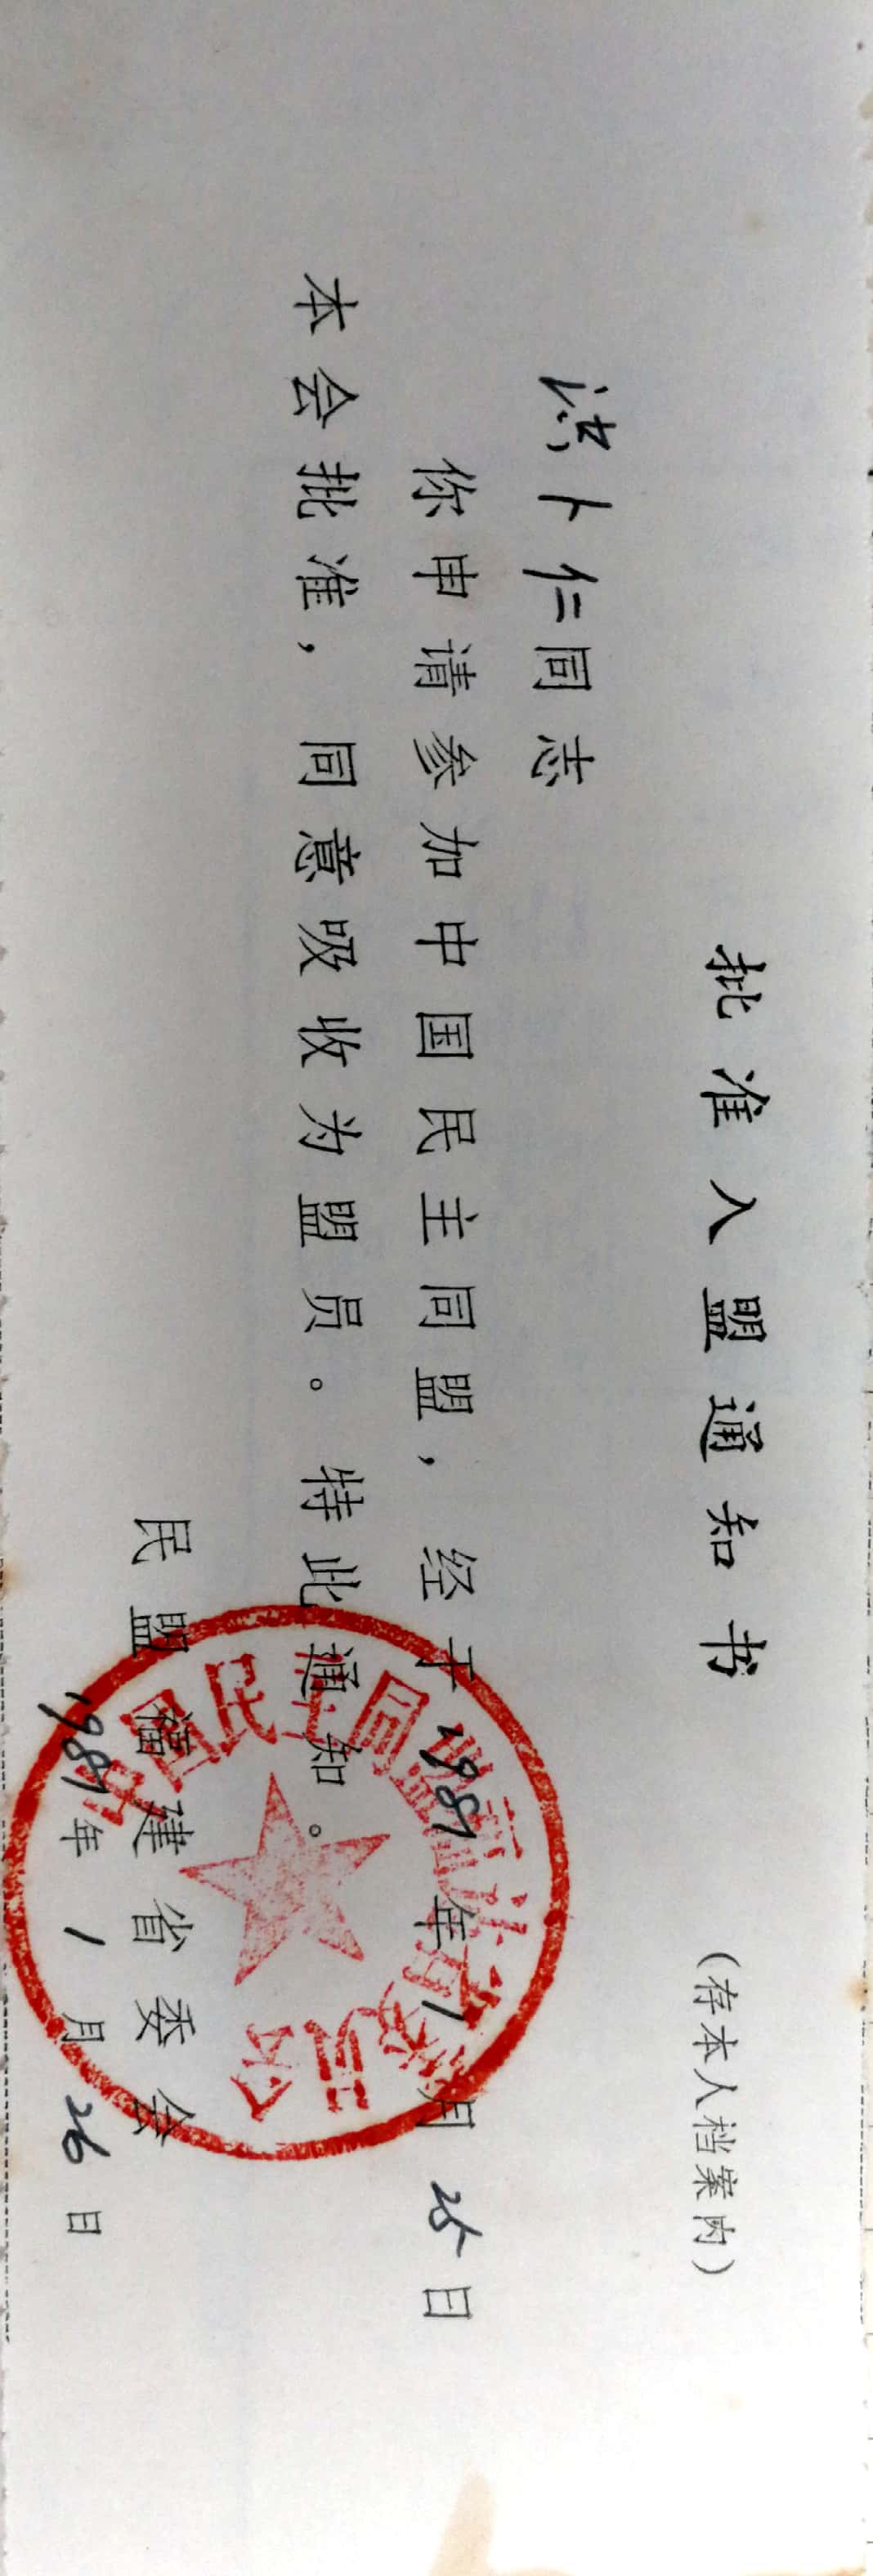 批准入盟通知书
（存本人档案内）
洪卜仁同志
你申请参加中国民主同盟，经于1989年1月25日
本会批准，同意吸收为盟员。特此通知。
民盟福建省委会
1989年1月26日
中国民主同盟福建省委员会